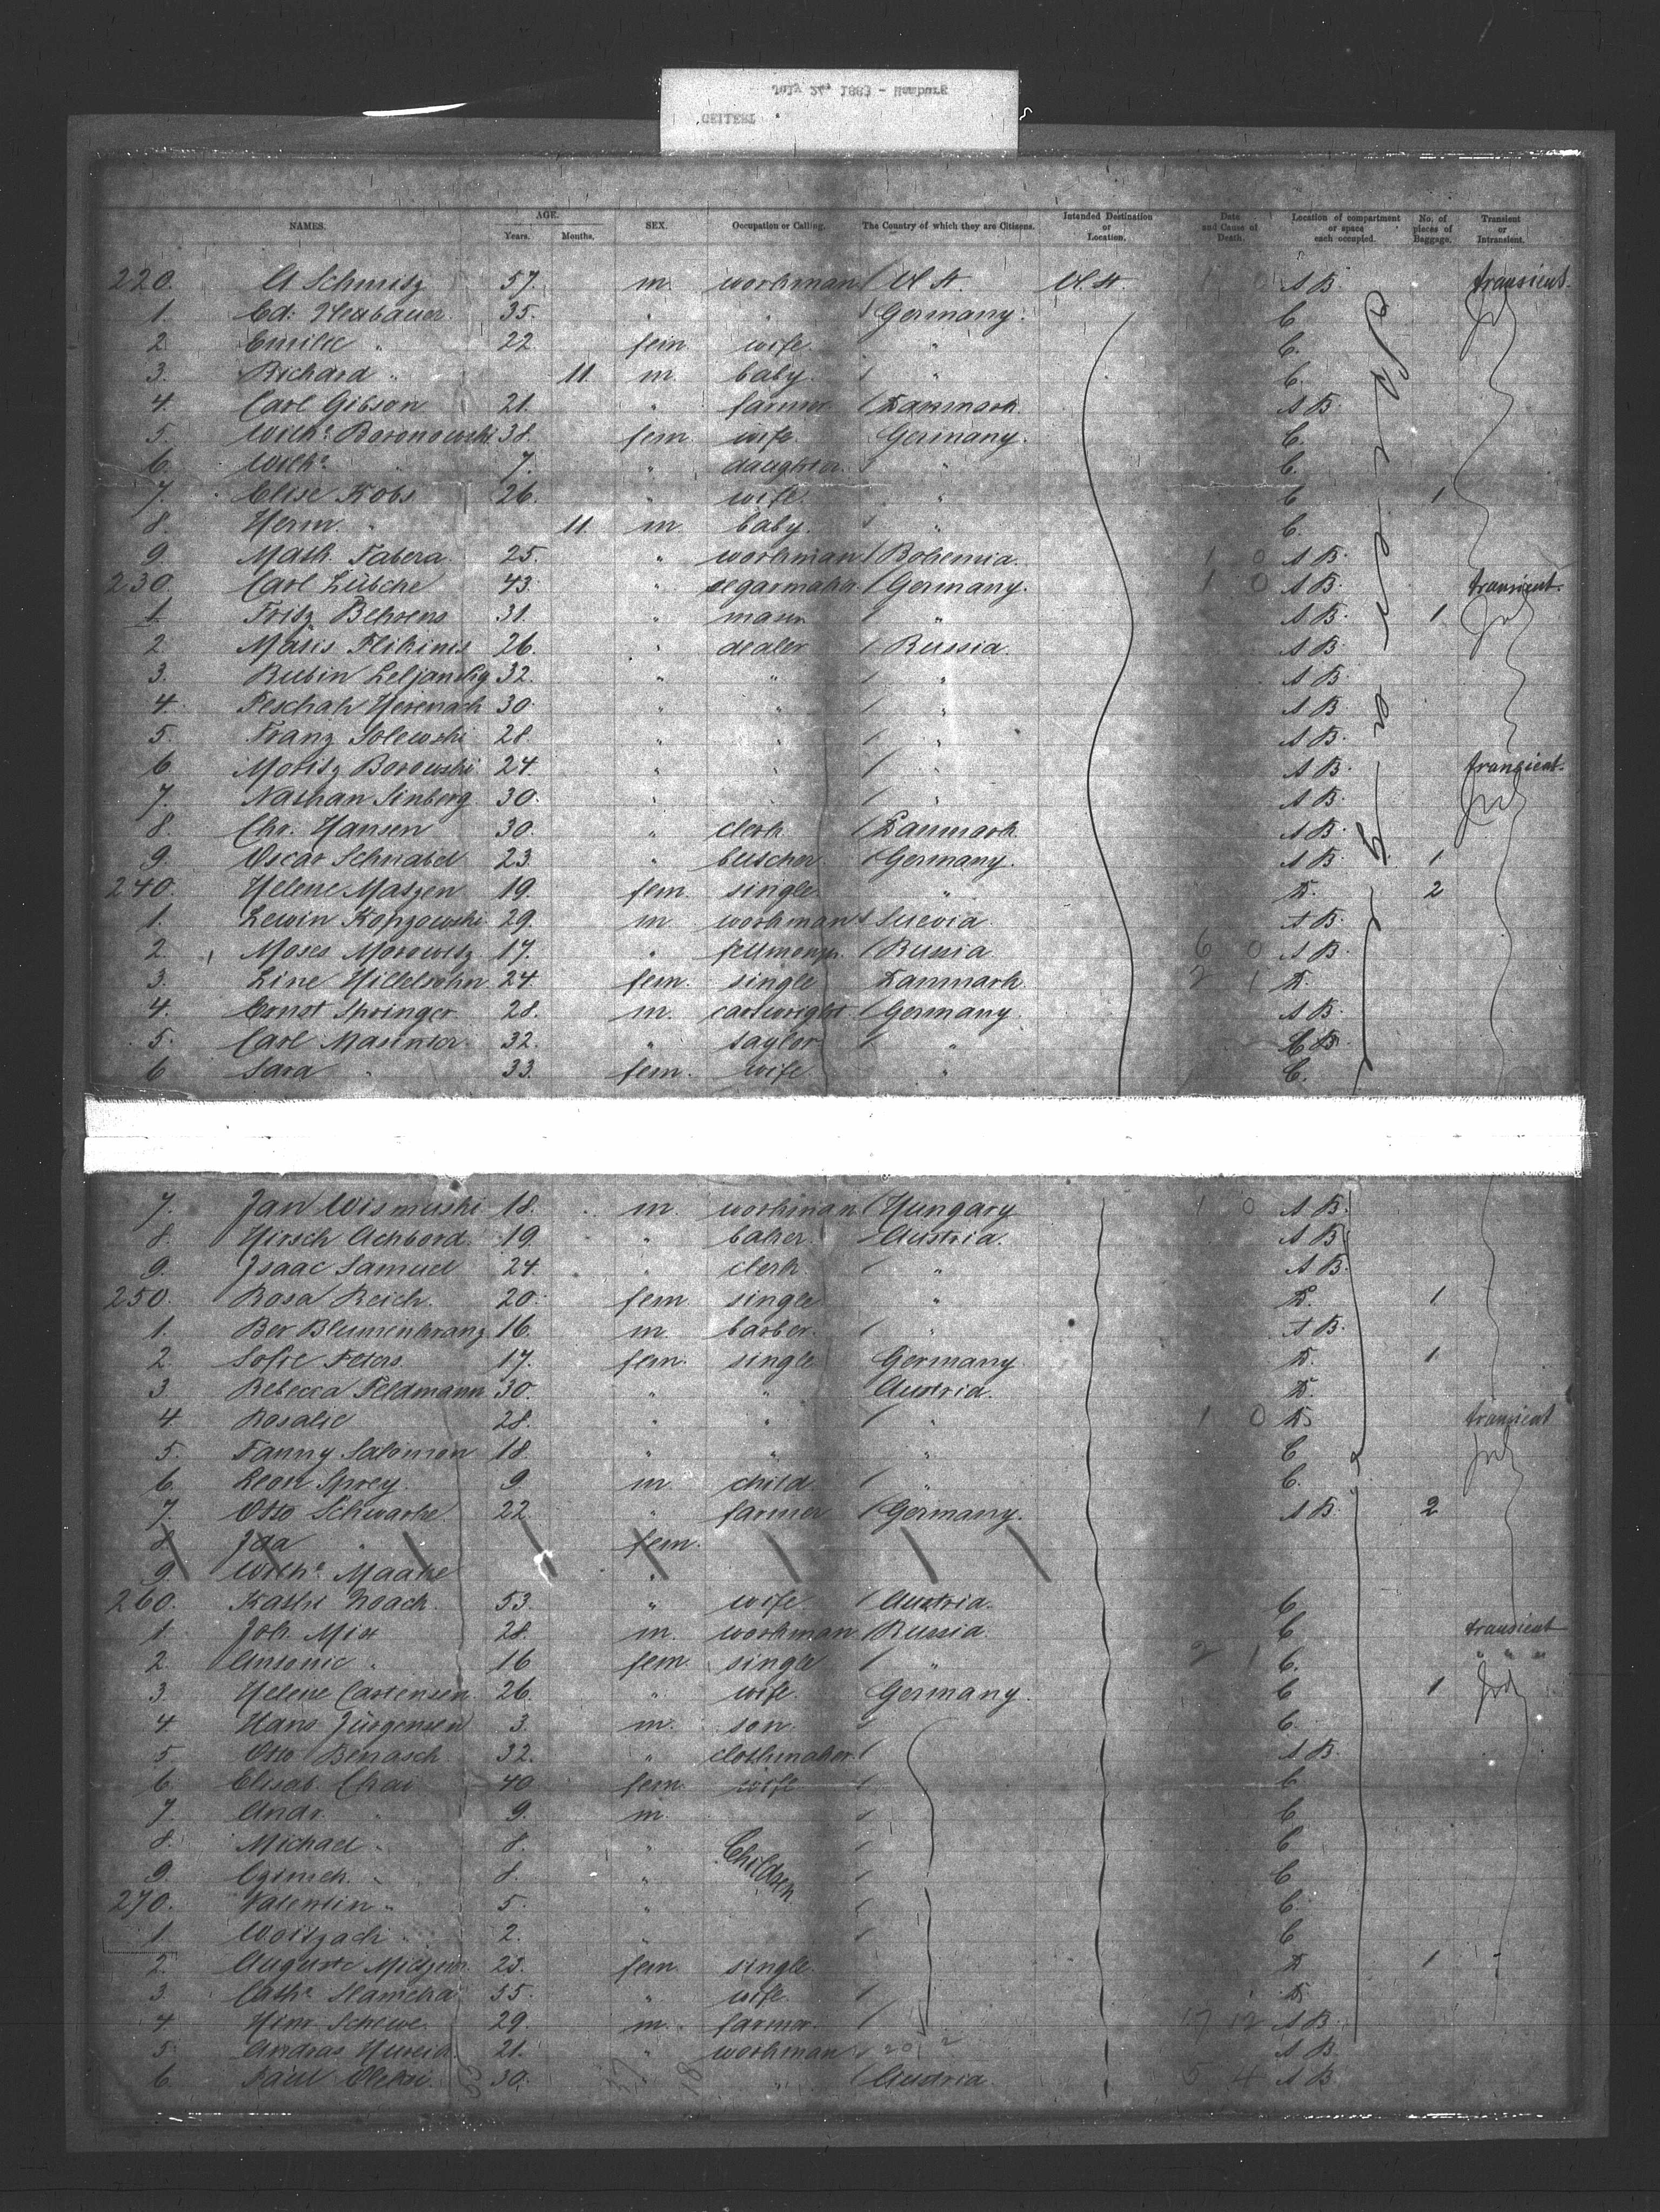 July 24, 1883 - Hamburg
GEITERT
NAMES. AGE. Years. Months. SEX. Occupation or Calling. The Country of which they are Citizens. Intended Destination or Location. Date and Cause of Death. Location of compartment or space each occupied. No. of pieces of Baggage. Transient or Intransient.
220. A Schmitz 57. m. workman U. St. U. St. 1 0 A B. transient.
1. Ed. Neubauer 35. " " Germany. C.
2. Emilie " 22. fem. wife " C.
3. Richard " 11 m. baby. " C.
4. Carl Gibson 21. " farmer Danmark. A B.
5. Wilhe Boronowski 38. fem. wife Germany. C.
6. Wilhe " 7. " daughter " C.
7. Elise Kobs 26. " wife " C 1
8. Herm. " 11 m. baby. " C.
9. Math. Fabera 25. " workman Bohemia. 1 0 A B.
230. Carl Lübche 43. " Germany. 1 0 A B. transient.
1. Fritz Behrens 31. " " A B. 1
2. 26. " dealer Russia. A B.
3. Rubin 32. " " " A B.
4. 30. " " " A B.
5. Franz Solewski 28 " " " A B.
6. Moritz Borowski 24. " " " A B. transient.
7. Nathan Sinberg 30. " " " A B.
8. Chr. Hansen 30. " clerk Danmark A B.
9. Oscar Schnabel 23. " Germany. A B. 1
240. Helene Maszen 19. fem. single " D. 2
1. Lewin Kopzowski 29. m workman Suevia. A B.
2. Moses Morowitz 17. " Russia 6 0 A B.
3. Line Hillelsohn 24. fem. single Danmark. 2 1 D.
4. Ernst Springer 28. m. cartwright Germany. A B.
5. Carl 32. " saylor " B.
6 Sara " 33. fem. wife " C.
7. Jan Wismuski 18. m. workman Hungary 1 0 A B.
8. Hirsch Achbord. 19. " baker. Austria. A B
9. Isaac Samuel 24. " clerk " A B.
250. Rosa Reich. 20. fem. single " D. 1
1. Ber Blumenkranz 16. m. barber. " A B.
2. Sofie Peters 17. fem. single Germany D. 1
3. Rebecca Feldmann 30. " " Austria. D.
4. Rosalie 28. " " " 1 0 D. transient
5. Fanny Salomon 18. " " " C
6. Leon Sprey. 9 m. child. " C.
7. Otto Schwarke 22. " farmer Germany. A B. 2
8 Ida " fem.
9. Wilhe Maake "
260. Noach. 53. " wife Austria. C
1. Joh. Mix 28. m. workman Russia. C. transient
2. Antonie " 16 fem. single " 2 1 C. " " "
3. Helene Carstensen 26. " wife. Germany. C 1
4. Hans Jürgensen 3. m. son. C.
5. Otto Benasch 32. " clothmaker A B.
6. Elisab. Chai 40 fem. wife C.
7. Andr. " 9. m. Children C
8. Michael " 8. " C
9. " 8. " C
270. Valentin " 5. " C.
1. " 2. " C
2. Auguste 23. fem. single. D 1
3. Cathe 35. " wife. D.
4. Hinr. Schewe. 29. m. farmer. 17 12 A B.
5. Andras 21. " workman 20 2 A B
6. Paul 30. " " Austria. 5 4 A B